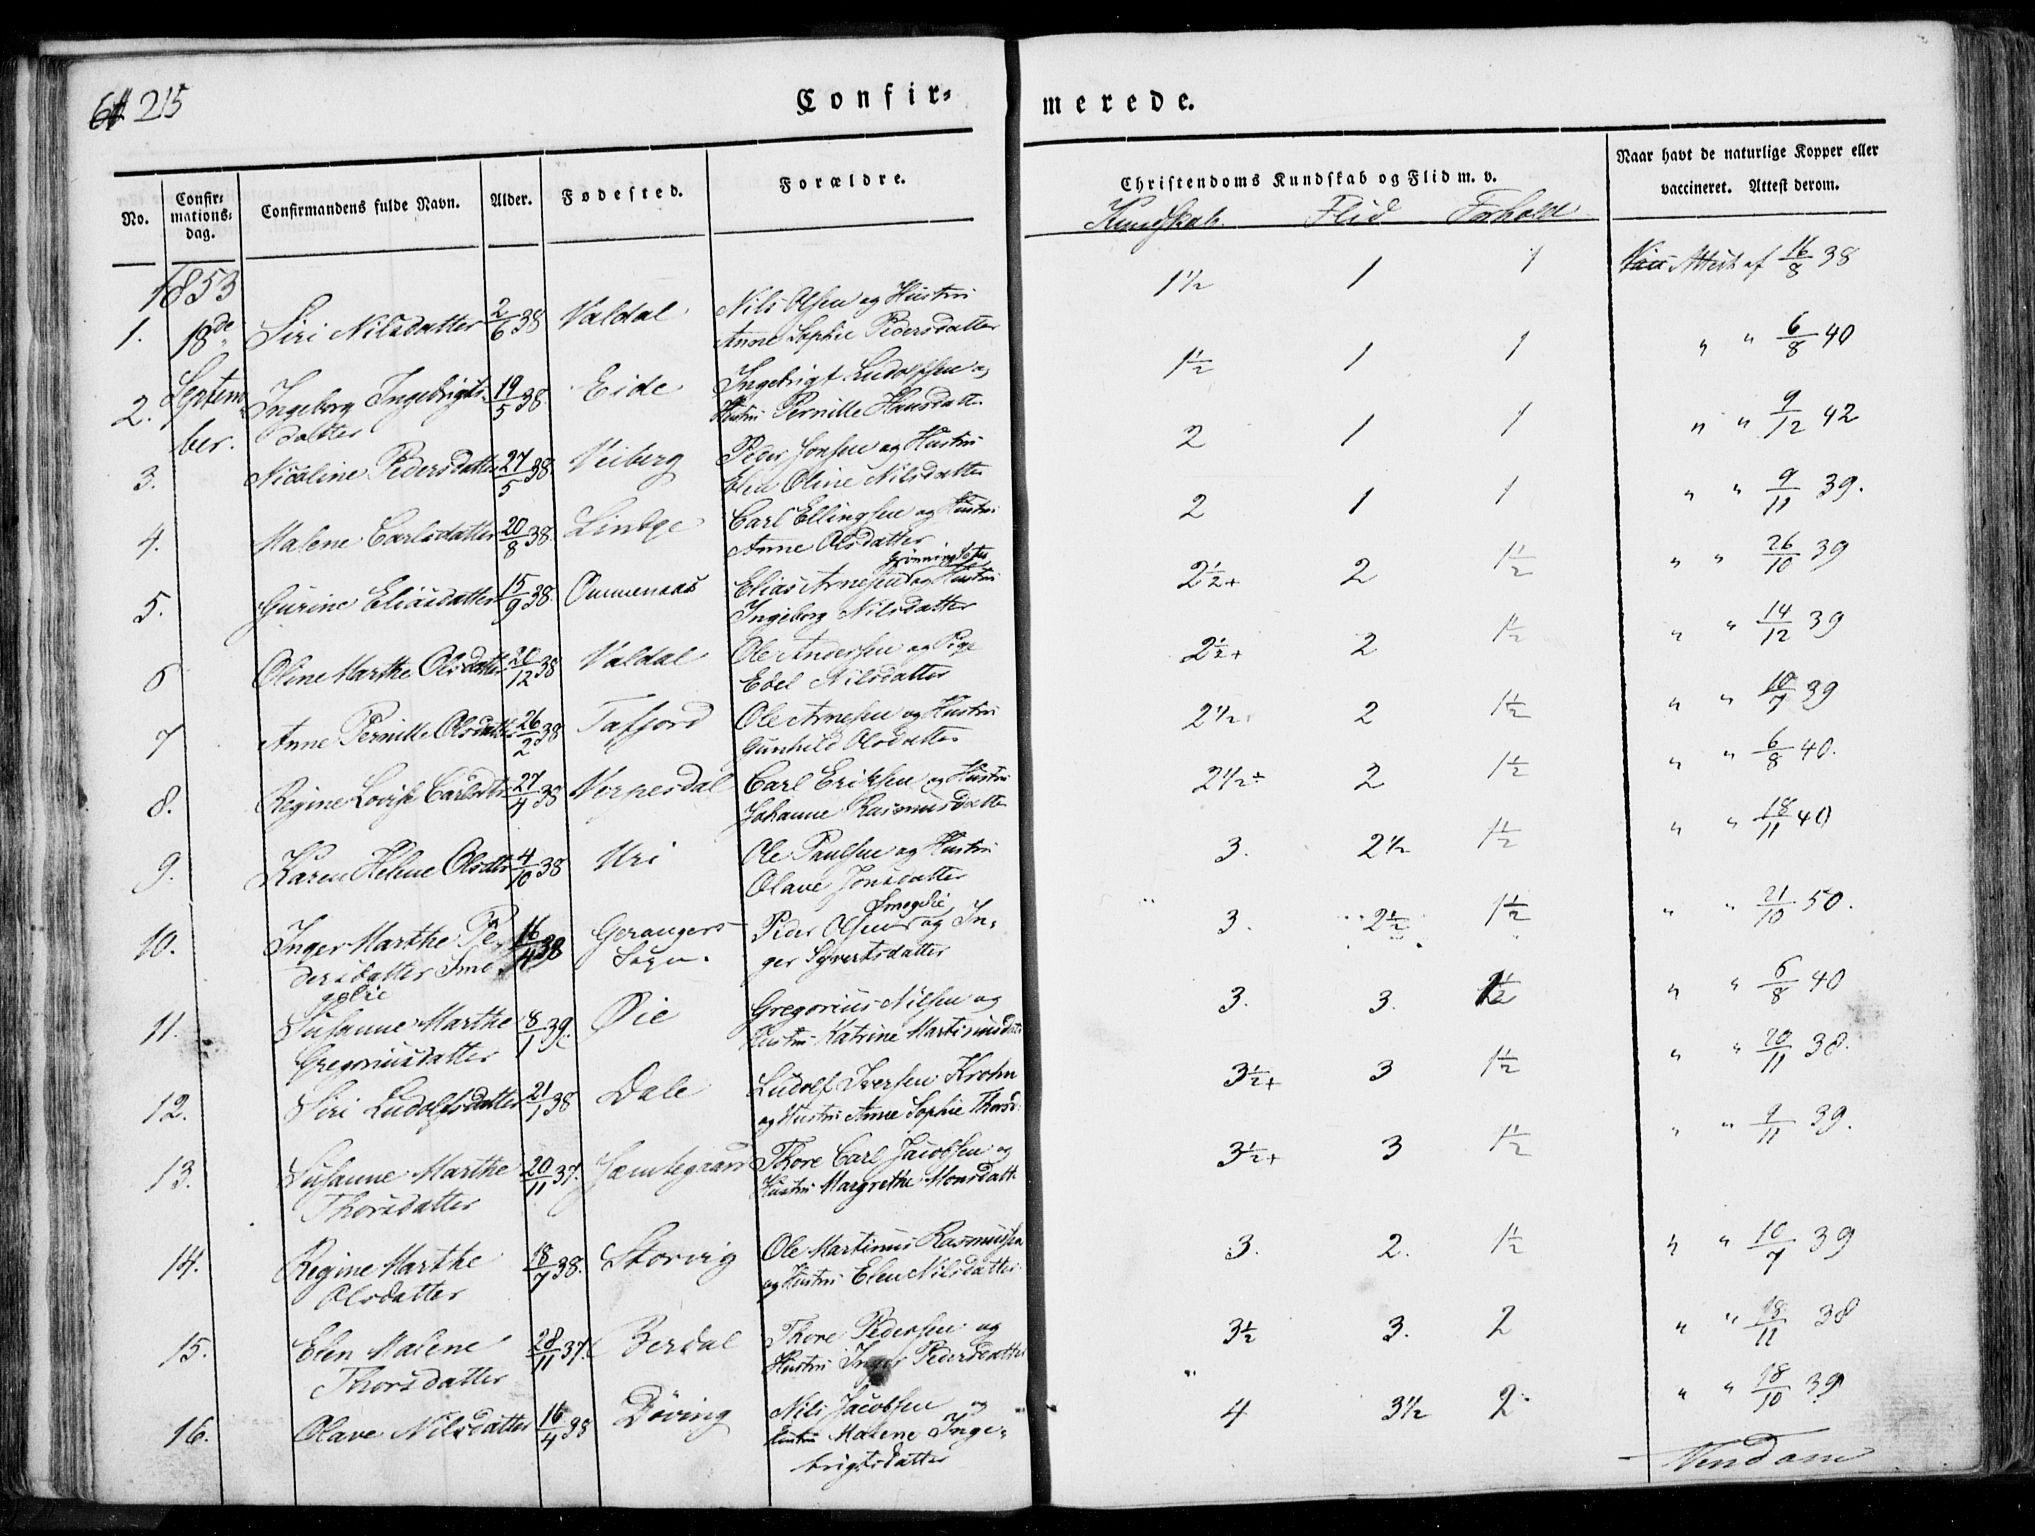 215
Confir-
merede.
No.
Confir-
mations-
dag.
Confirmandens fulde Navn.
Alder.
Fødested.
Forældre.
Christendoms Kundskab og Flid m. v.
Kundskab Flid Forhold
Naar havt de naturlige Kopper eller
vaccineret. Attest derom.
1853
1. 18de Siri Nilsdatter 2/6 38 Valdal Nils Olsen og Hustru
Anne Sophie Pedersdatter
1½ 1 1 Attest af 16/8 38
2. Septem-
ber. Ingeborg Ingebrigts-
datter 19/5 38 Eide Ingebrigt Ludolfsen og
Hustru Pernille Hansdatter
1½ 1 1 " " 6/8 40
3. Nicoline Pedersdatter 27/5 38 Veiberg Peder Jonsen og Hustru
Elen Oline Nilsdatter
2 1 1 " " 9/12 42
4. Malene Carlsdatter 20/8 38. Linge Carl Ellingsen og Hustru
Anne Olsdatter
2 1 1 " " 9/11 39.
5. Gurine Eliasdatter 15/9 38. Ommenaas Elias Arnesen og Hustru
Ingeborg Nilsdatter
2½+ 2 1½ " " 26/10 39
6 Oline Marthe Olsdatter /12 38 Valdal Ole Andersen og Pige
Edel Nilsdatter
2½+ 2 1½ " " 14/12 39
7 Anne Pernille Olsdatter 26/2 38 Tafjord Ole Arnesen og Hustru
Gunhild Olsdatter
2½ 2 1½ " " 10/7 39
8. Regine Lovise Carlsdtr 27/4 38 Verpesdal Carl Eriksen og Hustru
Johanne Rasmusdatter
2½÷ 2 1½ " " 6/8 40.
9. Karen Helene Olsdtr 4/10 38 Uri Ole Paulsen og Hustru
Olave Jonsdatter
3. 2½ 1½ " " 18/11 40
10. Inger Marthe Pe-
dersdatter Sme-
gelie 16/4 38 Gerangers
Sogn. Smegelie
Peder Olsen og In-
ger Syvertsdatter
3. 2½ 1½ " " 21/10 50.
11. Susanne Marthe
Gregoriusdatter 8/1 39. Øie Gregorius Nilsen og
Hustru Katrine Martinusdatter
3. 3. 1½ " " 6/8 40
12. Siri Ludolfsdatter 21/1 38 Dale Ludolf Iversen Krohn
og Hustru Anne Sophie Thorsd.
3½+ 3 1½ " " 20/11 38.
13. Susanne Marthe
Thorsdatter 20/11 37. Thore Carl Jacobsen og
Hustru Margrethe Monsdatt.
3½+ 3 1½ " " 9/11 39.
14. Regine Marthe
Olsdatter 18/7 38. Storvig Ole Martinus Rasmussen
og Hustru Elen Nilsdatter
3. 2. 1½ " " 10/7 39
15. Elen Malene
Thorsdatter 28/11 37. Berdal Thore Pedersen og
Hustru Inger Pedersdatter
3½ 3. 2 " " 18/11 38
16. Olave Nilsdatter 16/4 38 Døving Nils Jacobsen og
Hustru Malene Inge-
brigtsdatter
4 3½ 2 " " 18/10 39